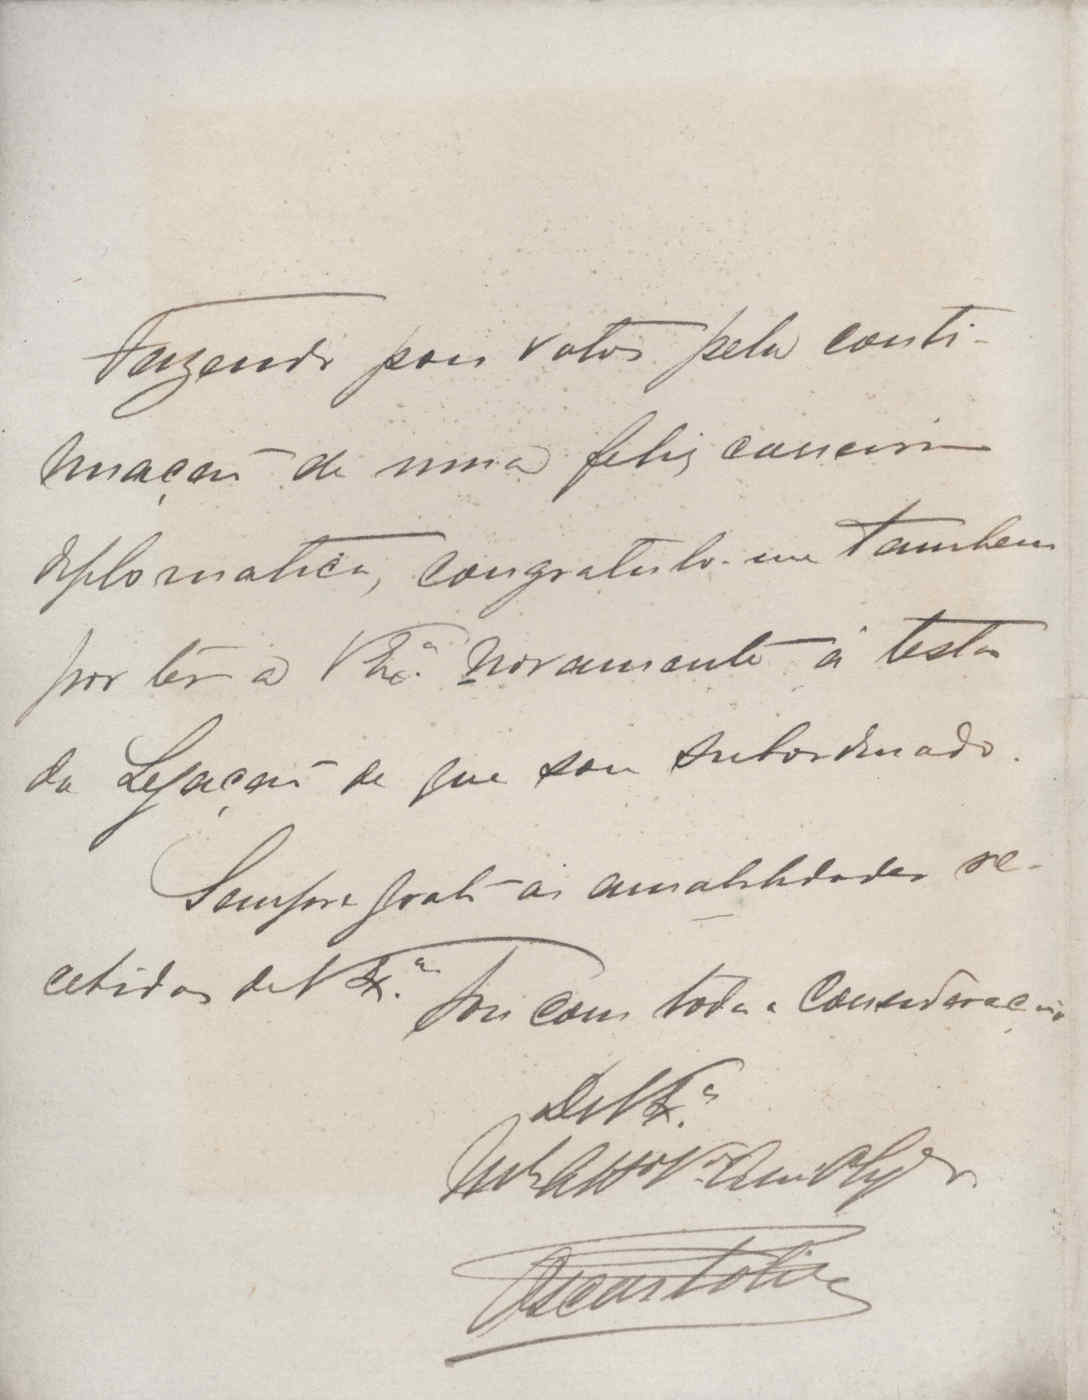 Fazendo pois votos pela conti-
nuação de uma feliz carreira
diplomatica, congratulo-me tambem
por ter a V Exª. novamente á testa
da Legação de que sou subordinado.
Sempre grato ás amabilidades re-
cebidas de V Exª. sou com toda a consideração
De V Exª.
Mto Atto Vor
Oscar